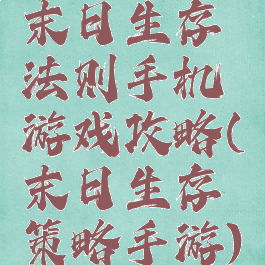 末日生存
法则手机
游戏攻略(
末日生存
策略手游)